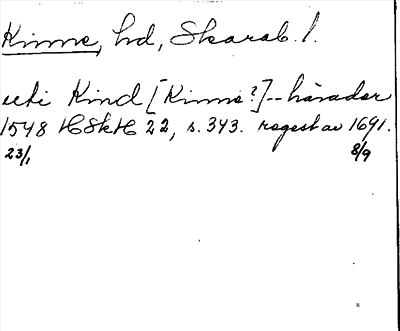 Kinne, hd, Skarab. l.
uti Kind [Kinne?]--härader
1548 HSkH 22, s. 343. regest av 1691.
23/1 8/9